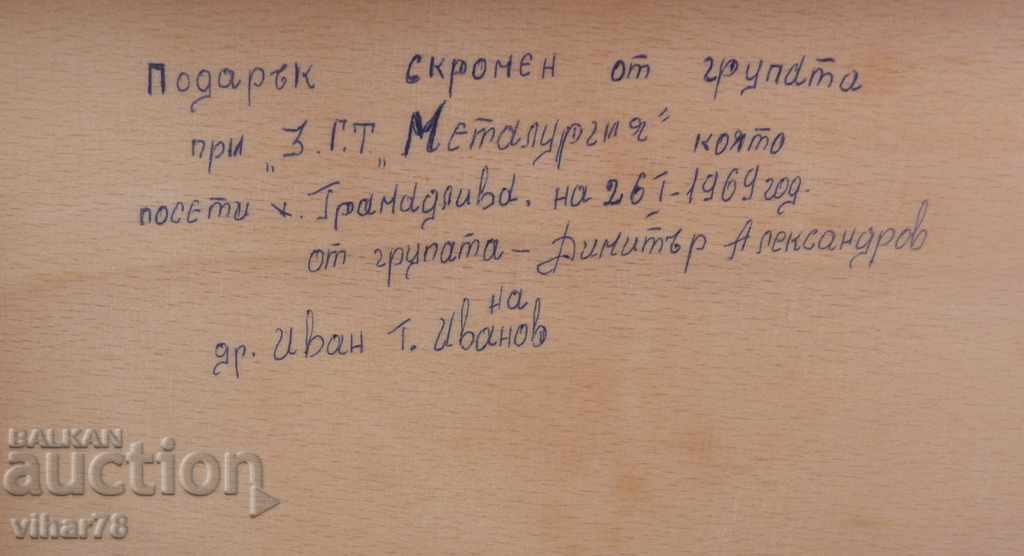 Подарък скромен от групата
при „З.Г.Т „Металургия" която
посети х. Грамадлива. на 26 I-1969 год.
от групата – Димитър Александров
на
др. Иван Т. Иванов
BALKAN
auction
vihar78